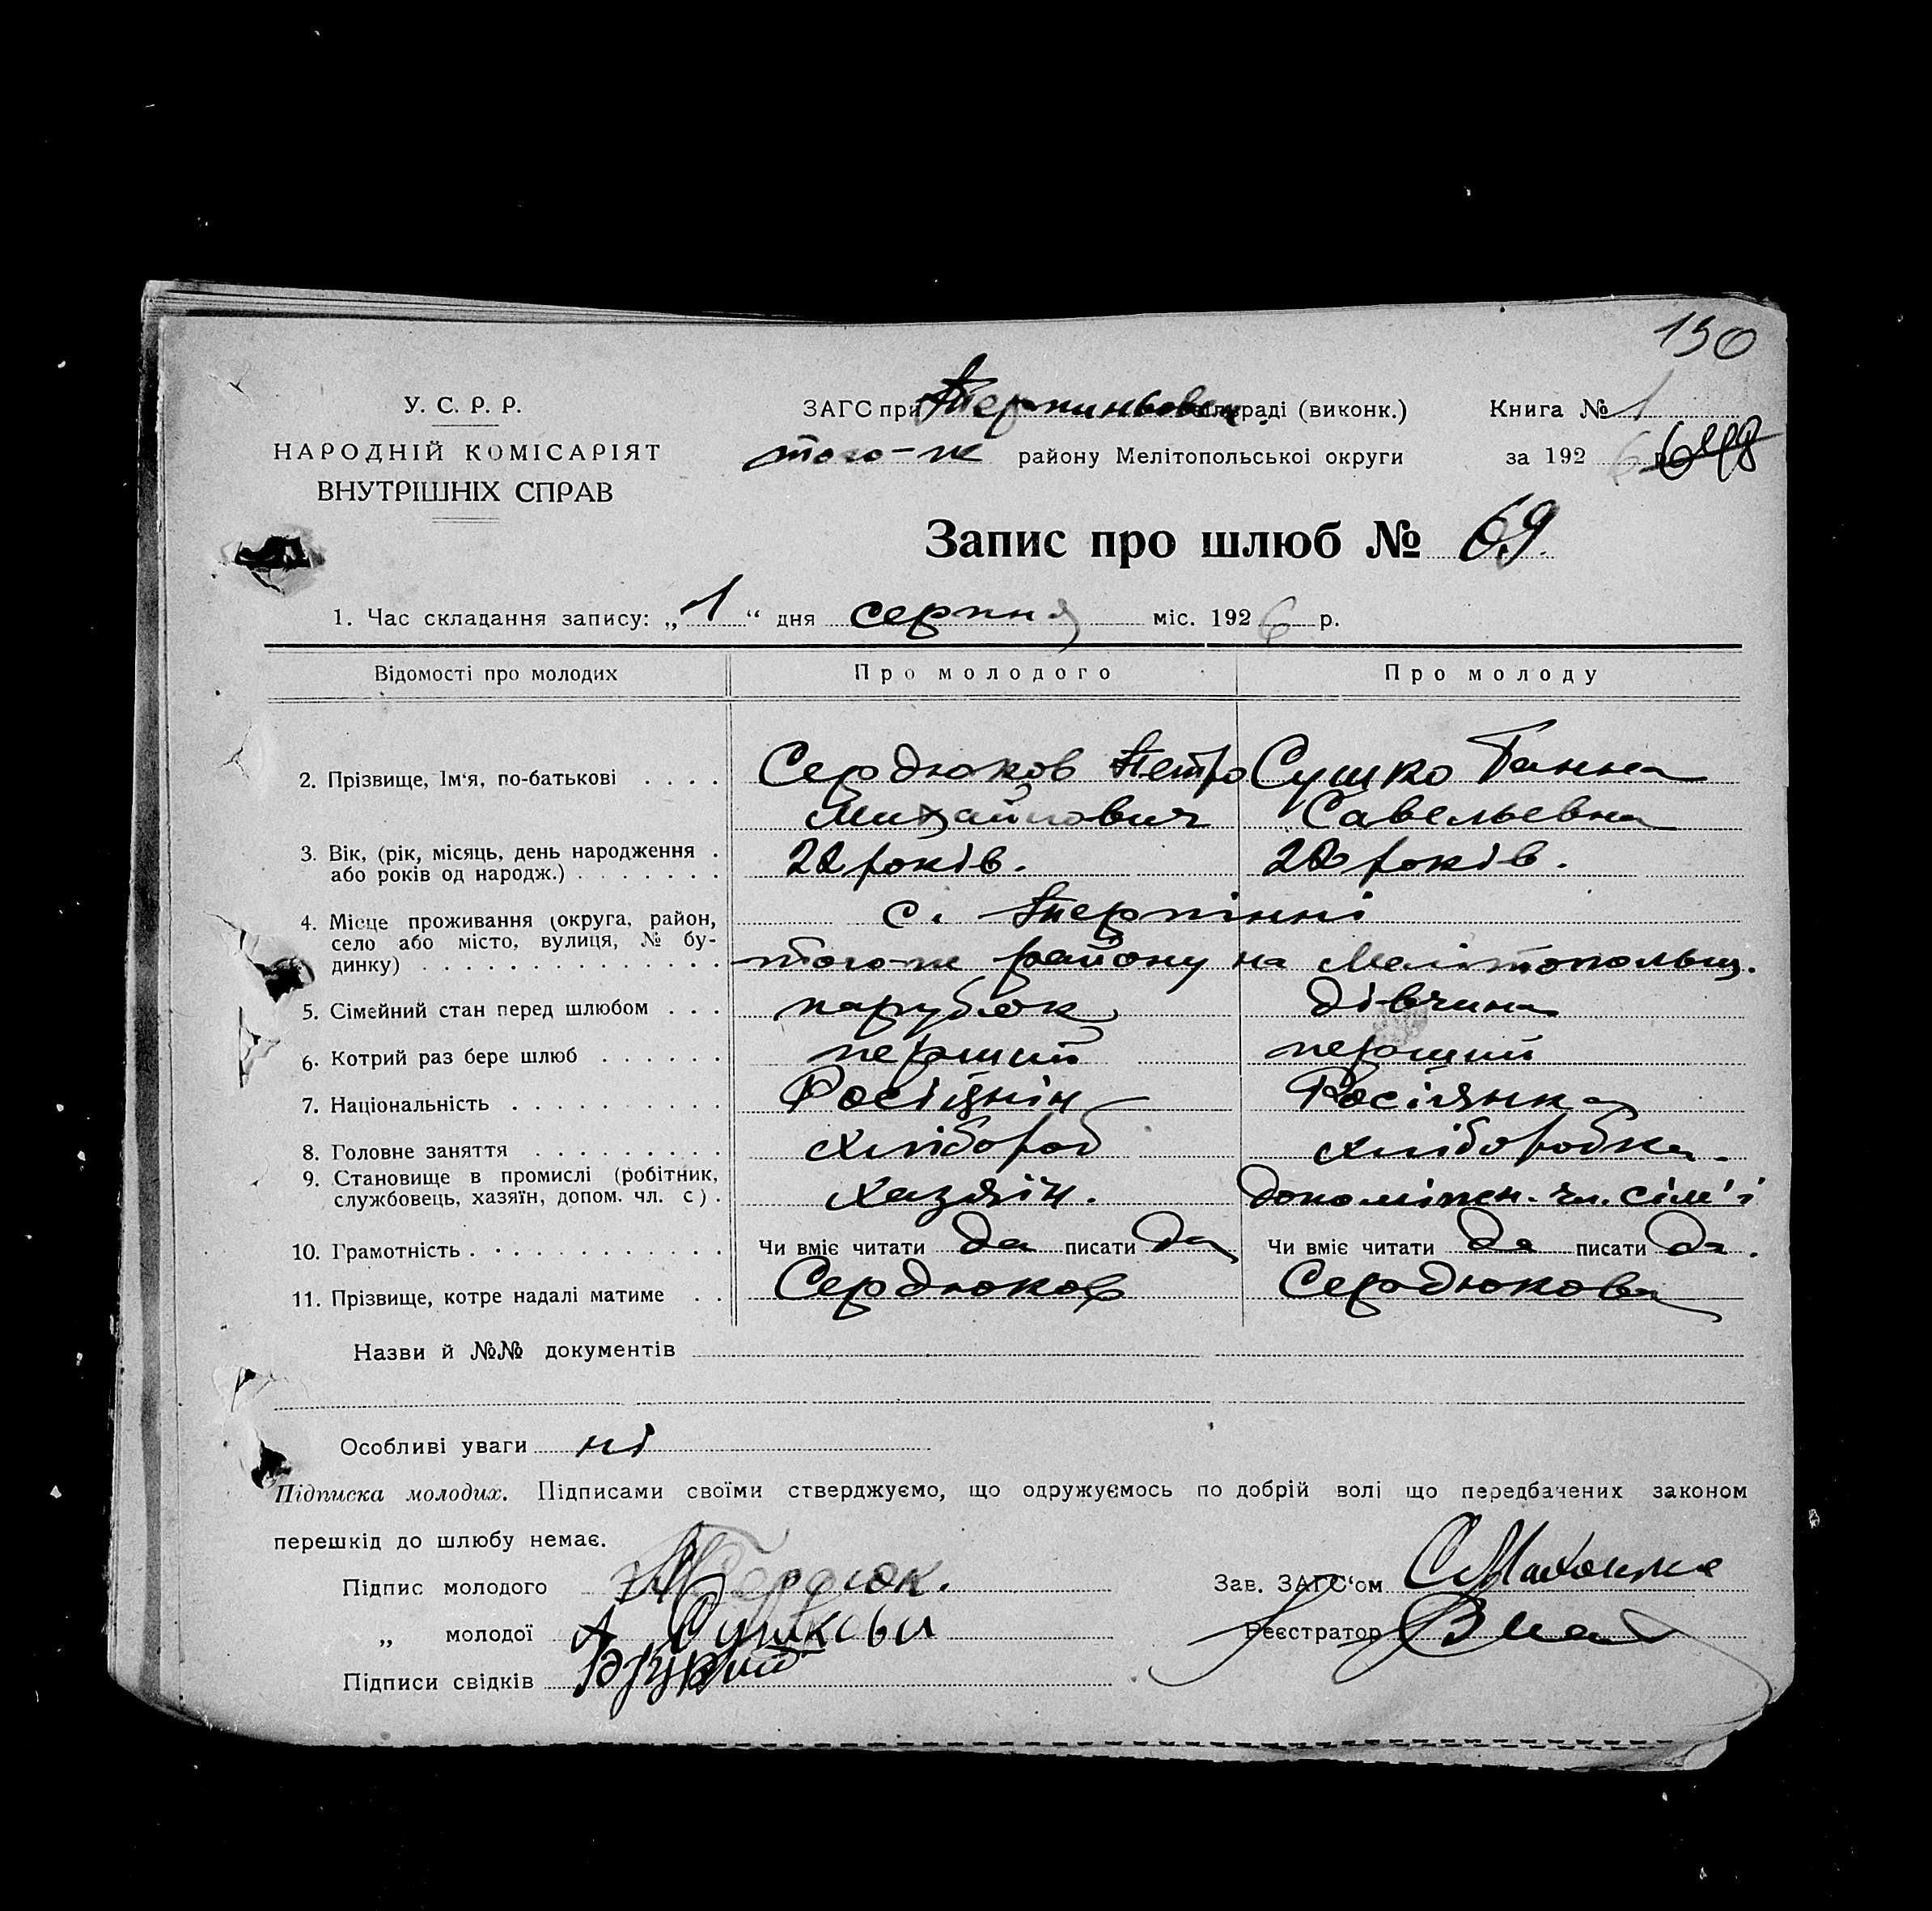 150
У. С. Р. Р.
НАРОДНІЙ КОМІСАРІЯТ
ВНУТРІШНІХ СПРАВ
ЗАГС при Терпиньовск. сільраді (виконк.)
того-ж району Мелітопольської округи
Книга № 1
за 1926 р.
Запис про шлюб № 69.
1. Час складання запису: „1“ дня серпня міс. 1926 р.
Відомості про молодих Про молодого Про молоду
2. Прізвище, Ім‘я, по-батькові Сердюков Петро Сушко Ганна
Михайлович Савельевна
3. Вік, (рік, місяць, день народження
або років од народж.) 22 років. 20 років.
4. Місце проживання (округа, район, с. Терпінні
село або місто, вулиця, № бу-
динку) того-ж району на Мелітопольщ.
5. Сімейний стан перед шлюбом парубок дівчина
6. Котрий раз бере шлюб перший перший
7. Національність Росіянін Росіянка
8. Головне заняття хлібороб хліборобка.
9. Становище в промислі (робітник,
службовець, хазяїн, допом. чл. с). хазяін. допоміжн. чл. сім'і
10. Грамотність Чи вміє читати да писати да Чи вміє читати да писати да.
11. Прізвище, котре надалі матиме Сердюков Сердюкова
Назви й №№ документів
Особливі уваги ні
Підписка молодих. Підписами своїми стверджуємо, що одружуємось по добрій волі що передбачених законом
перешкід до шлюбу немає.
Підпис молодого Сердюк.
Зав. ЗАГС‘ом
„ молодої А Сушкова
Реєстратор
Підписи свідків